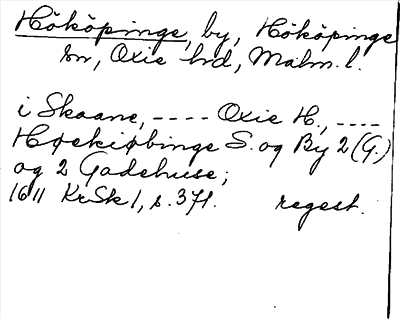 Hököpinge, by, Hököpinge
sn, Oxie hd, Malm. l.
i Skaane, ---- Oxie H., ----
Høekiøbinge S. og By 2 (G.)
og 2 Gadehuse;
1611 KrSk 1, s. 371. regest.